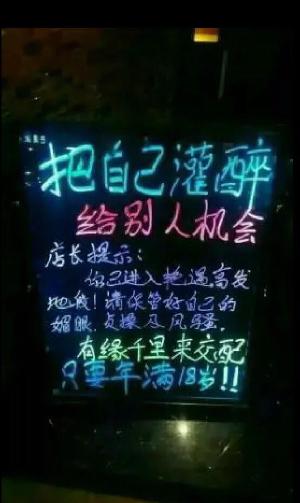 把自己灌醉
给别人机会
店长提示:
你已进入艳遇高发
地段!请保管好自己的
媚眼、贞操及风骚.
有缘千里来交配
只要年满18岁!!